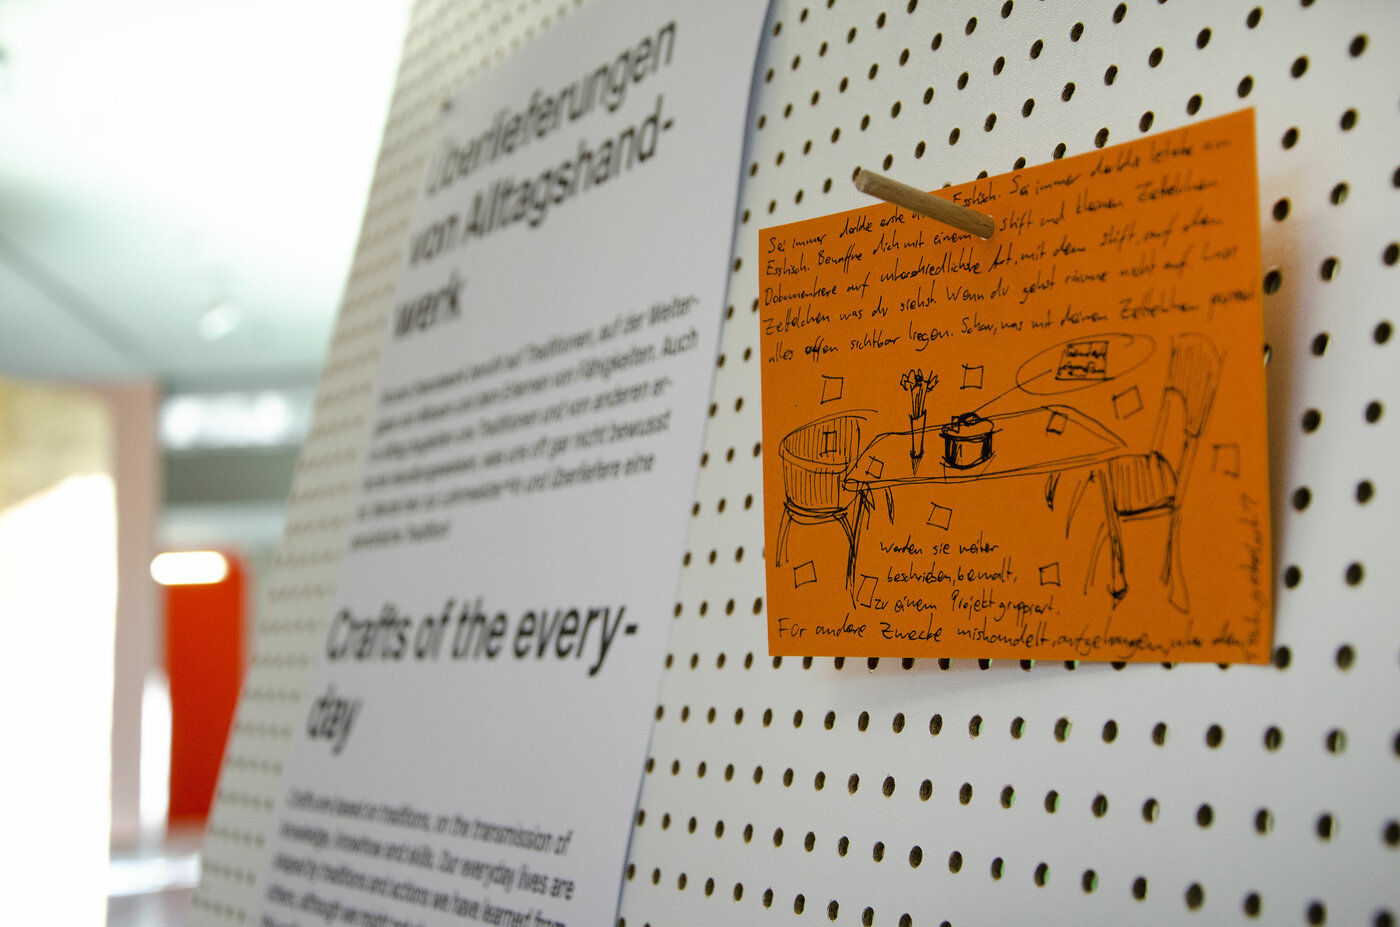 Überlieferungen
von Alltagshand-
werk
auf Traditionen, auf der Weiter-
und dem Erlernen von Fähigkeiten. Auch
von Traditionen und von anderen er-
wie uns oft gar nicht bewusst
und überliefere eine
Tradition!
Crafts of the every-
day
Crafts are based on traditions, on the transmission of
knowledge, knowhow and skills. Our everyday lives are
shaped by traditions and actions we have learned from
others, although we might not
Sei immer der/die erste Esstisch. Sei immer der/die letzte am
Esstisch. Bewaffne dich mit einem Stift und kleinen Zettelchen
Dokumentiere auf unterschiedlichste Art, mit dem Stift, auf den
Zettelchen was du siehst. Wenn du gehst räume nicht auf. Lass
alles offen sichtbar liegen. Schau, was mit deinen Zettelchen passiert
Werden sie weiter
beschrieben, bemalt,
zu einem Projekt gruppiert.
Für andere Zwecke misshandelt, aufgehangen, unter den